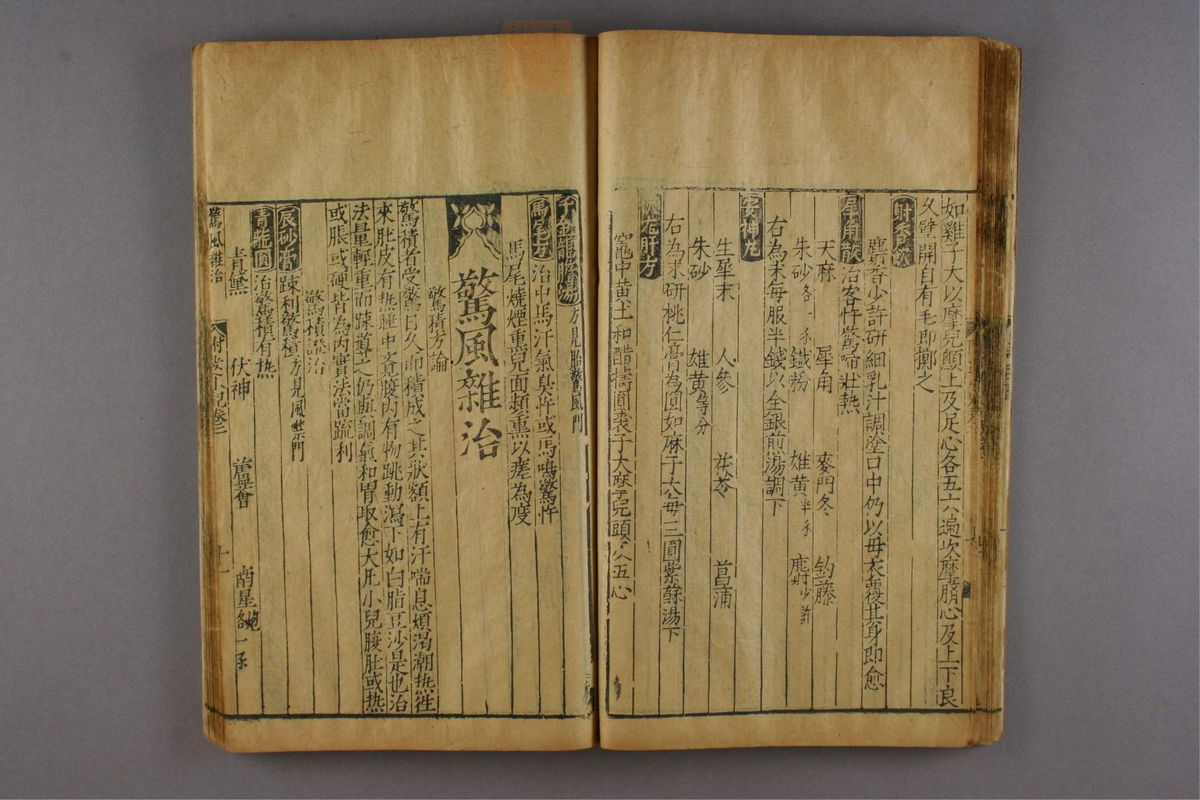 如雞子大以摩兒顖上及足心各五六遍次摩臍心及上下良
久擘開自有毛即擲之
麝香少許研細乳汁調塗口中仍以母衣覆其身即愈
犀角散 治客忤驚啼壯熱
天麻 犀角 麥門冬 釣藤
朱砂各一 鐵粉 雄黃半 麝少許
右為末每服半錢以金銀煎湯調下
安神丸
生犀末 人參 茯苓 菖蒲
朱砂 雄黃等分
右為末研桃仁膏為圓如麻子大每三圓紫蘇湯下
伏龍肝方
竈中黃土和醋擣圓彈子大摩兒頭及五心
千金龍膽湯 方見胎驚風門
馬尾方 治中馬汗氣臭忤或馬鳴驚忤
馬尾燒煙熏兒面頻熏以瘥為度
驚風雜治
驚積方論
驚積者受驚日久而積成之其狀額上有汗喘息煩渴潮热往
來肚皮有热睡中覺腹內有物跳動瀉下如白脂豆沙是也治
法量輕重而踈導之仍與調氣和胃取愈大凡小兒腹肚或热
或脹或硬皆為內實法當疏利
驚積證治
辰砂膏 踈利驚積方見風禁門
青龍圓 治驚積有热
青黛 伏神 蘆薈 南星炮各一
驚風雜治
十一